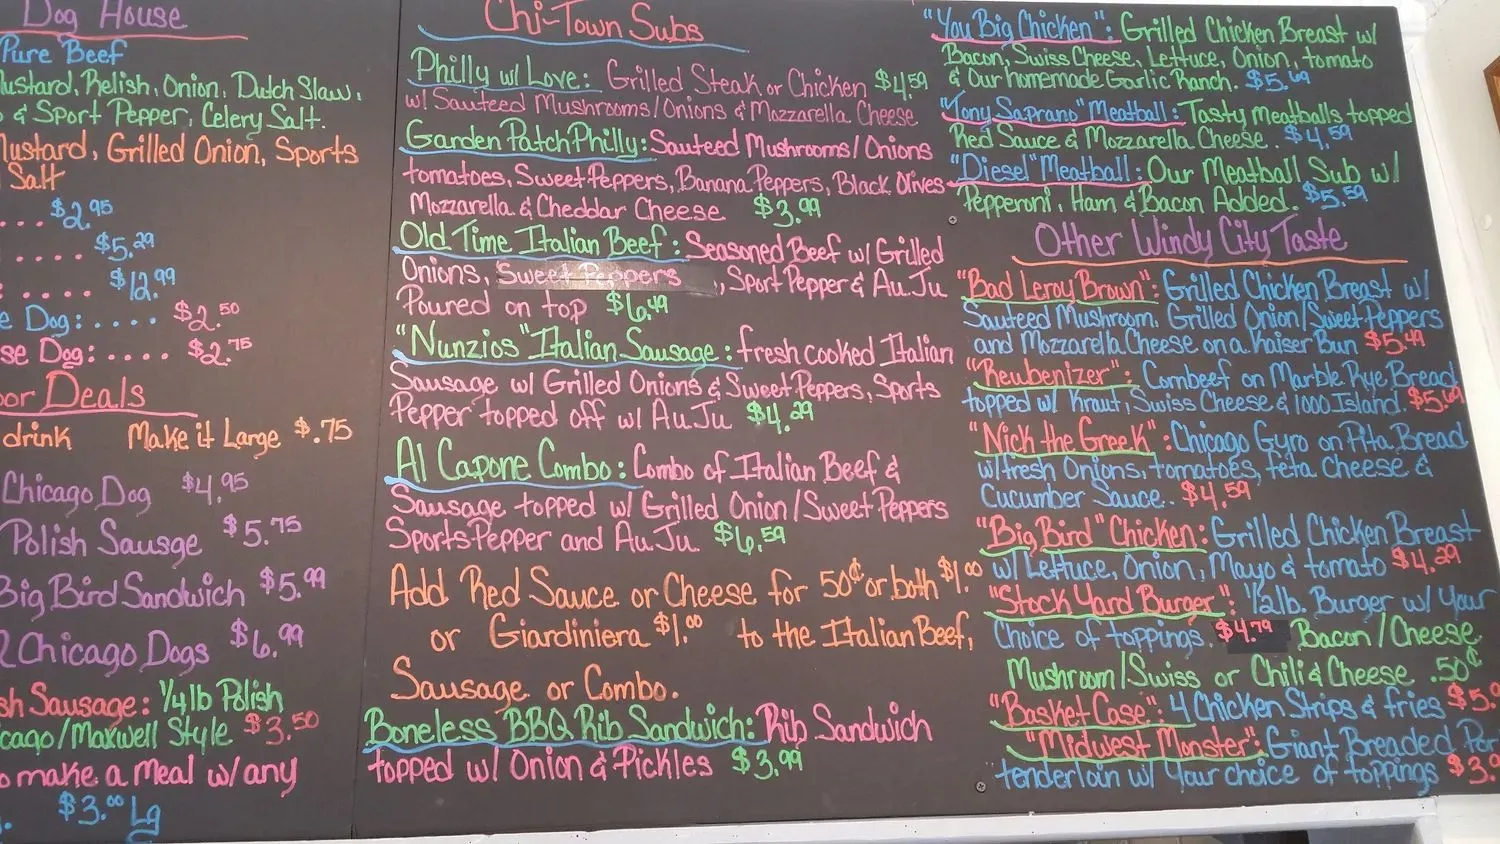 Dog House
Pure Beef
Mustard, Relish, Onion, Dutch Slaw,
& Sport Pepper, Celery Salt.
Mustard, Grilled Onion, Sports
Salt
.... $2.95
..... $5.29
.... $12.99
e Dog:.... $2.50
se Dog:.... $2.75
or Deals
drink Make it Large $.75
Chicago Dog $4.95
Polish Sausge $5.75
Big Bird Sandwich $5.99
2 Chicago Dogs $6.99
sh Sausage: 1/4 lb Polish
cago/Maxwell Style $3.50
o make a Meal w/any
$3.00 Lg
Chi-Town Subs
Philly w/ Love: Grilled Steak or Chicken $4.59
w/ Sauteed Mushrooms/Onions & Mozzarella Cheese
Garden Patch Philly: Sauteed Mushrooms/Onions
tomatoes, Sweet Peppers, Banana Peppers, Black Olives
Mozzarella & Cheddar Cheese $3.99
Old Time Italian Beef: Seasoned Beef w/ Grilled
Onions, Sweet Peppers , Sport Pepper & Au Ju
Poured on top $6.49
"Nunzios" Italian Sausage: fresh cooked Italian
Sausage w/ Grilled Onions & Sweet Peppers, Sports
Pepper topped off w/ Au Ju $4.29
Al Capone Combo: Combo of Italian Beef &
Sausage topped w/ Grilled Onion/Sweet Peppers
Sports Pepper and Au Ju $6.59
Add Red Sauce or Cheese for 50¢ or both $1.00
or Giardiniera $1.00 to the Italian Beef,
Sausage or Combo.
Boneless BBQ Rib Sandwich: Rib Sandwich
topped w/ Onion & Pickles $3.99
"You Big Chicken": Grilled Chicken Breast w/
Bacon, Swiss Cheese, Lettuce, Onion, tomato
& Our homemade Garlic Ranch. $5.69
"Tony Saprano" Meatball: Tasty meatballs topped
Red Sauce & Mozzarella Cheese. $4.59
"Diesel" Meatball: Our Meatball Sub w/
Pepperoni, Ham & Bacon Added. $5.59
Other Windy City Taste
"Bad Leroy Brown": Grilled Chicken Breast w/
Sauteed Mushroom, Grilled Onion/Sweet Peppers
and Mozzarella Cheese on a Kaiser Bun $5.49
"Rewbenizer": Cornbeef on Marble Rye Bread
topped w/ Kraut, Swiss Cheese & 1000 Island. $5.69
"Nick the Greek": Chicago Gyro on Pita Bread
w/fresh Onions, tomatoes, feta Cheese &
Cucumber Sauce.. $4.59
"Big Bird" Chicken: Grilled Chicken Breast
w/ Lettuce, Onion, Mayo & tomato $4.29
"Stock Yard Burger": 1/2 lb. Burger w/ Your
Choice of toppings. $4.79 Bacon/Cheese
Mushroom/Swiss or Chili & Cheese .50¢
"Basket Case": 4 Chicken Strips & fries $5.9
"Midwest Monster": Giant Breaded Por
tenderloin w/ Your choice of toppings $3.9